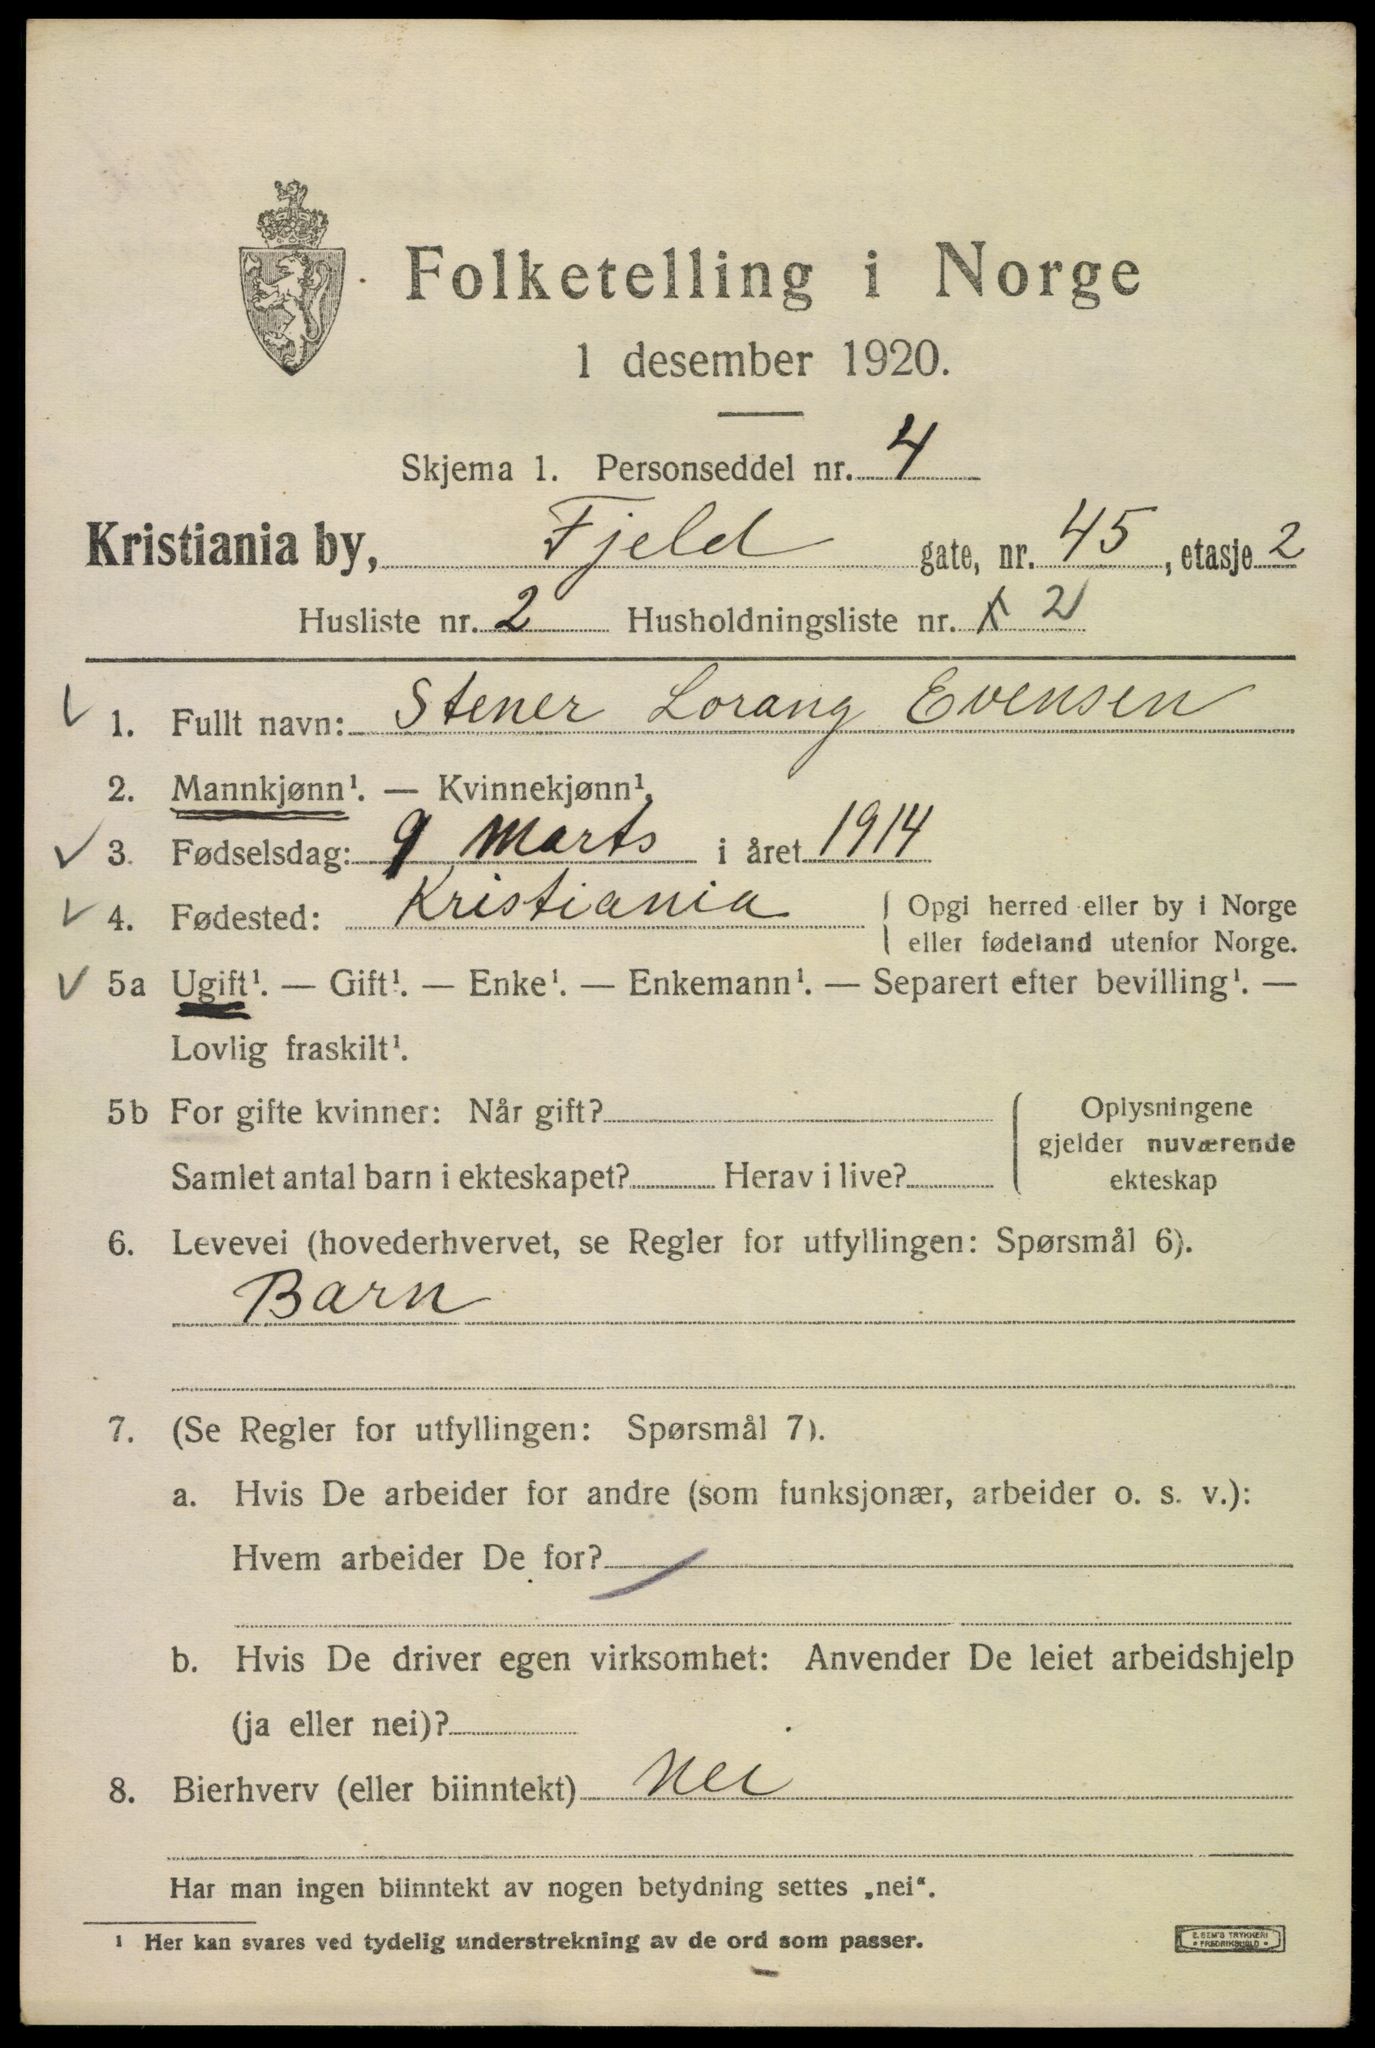 Folketelling i Norge
1 desember 1920.
Skjema 1. Personseddel nr. 4
Kristiania by, Fjeld gate, nr. 45, etasje 2
Husliste nr. 2 Husholdningsliste nr. 2
1. Fullt navn: Stener Lorang Evensen
2. Mannkjønn¹. — Kvinnekjønn¹.
3. Fødselsdag: 9 Marts i året 1914
4. Fødested: Kristiania Opgi herred eller by i Norge
eller fødeland utenfor Norge.
5a Ugift¹. — Gift¹. — Enke¹. — Enkemann¹. — Separert efter bevilling¹. —
Lovlig fraskilt¹.
5b For gifte kvinner: Når gift? Oplysningene
gjelder nuværende
Samlet antal barn i ekteskapet? Herav i live? ekteskap
6. Levevei (hovederhvervet, se Regler for utfyllingen: Spørsmål 6).
Barn
7. (Se Regler for utfyllingen: Spørsmål 7).
a. Hvis De arbeider for andre (som funksjonær, arbeider o. s. v.):
Hvem arbeider De for?
b. Hvis De driver egen virksomhet: Anvender De leiet arbeidshjelp
(ja eller nei)?
8. Bierhverv (eller biinntekt) Nei
Har man ingen biinntekt av nogen betydning settes „nei“.
¹ Her kan svares ved tydelig understrekning av de ord som passer.
E. SEM'S TRYKKERI
FREDRIKSHALD